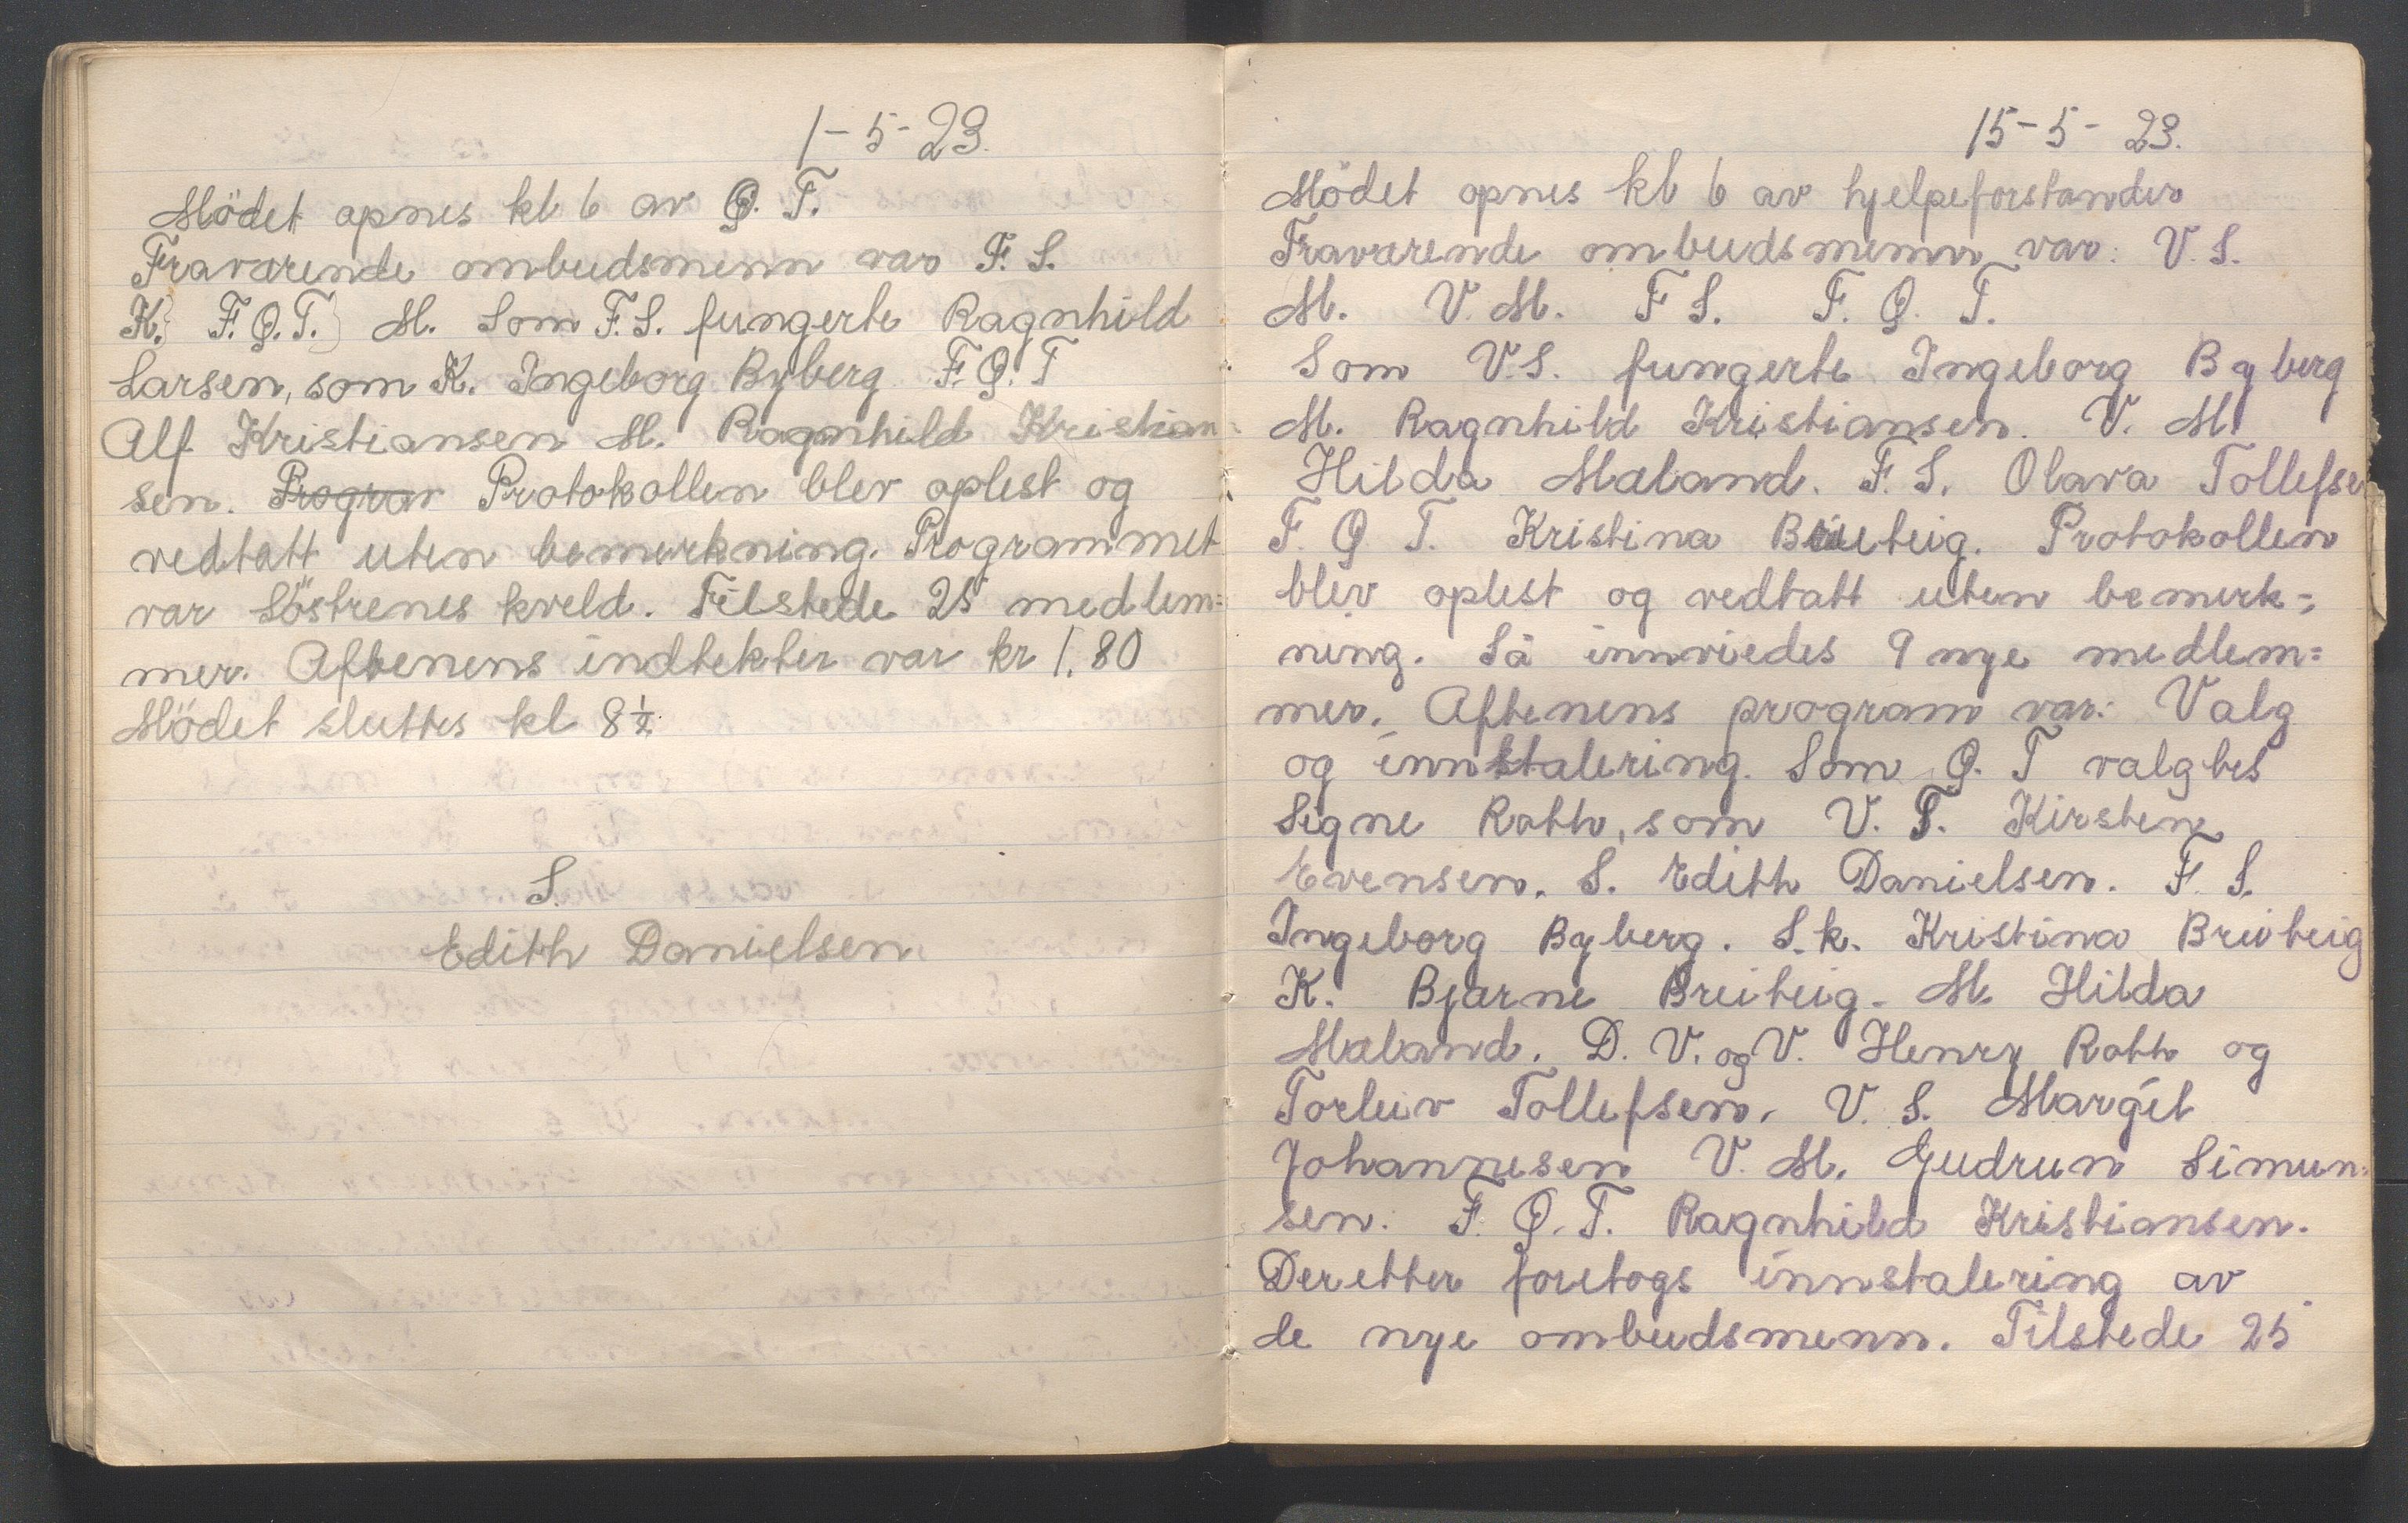 1-5-23.
Mödet opnes kl 6 av Ø. T.
Fraværende ombudsmenn var F. S.
K. F. Ø. T. M. Som F. S. fungerte Ragnhild
Larsen, som K. Ingeborg Byberg F. Ø. T
Alf Kristiansen M. Ragnhild Kristian-
sen. Prograv Protokollen blev oplest og
vedtatt uten bemerkning. Programmet
var Söstrenes kveld. Tilstede 25 medlem=
mer. Aftenens indtekter var kr 1.80
Mödet sluttes kl 8½
S.
Edith Danielsen
15-5-23.
Mödet opnes kl 6 av hjelpeforstander
Fraværende ombudsmenn var: V. S.
M. V. M. F S. F. Ø. T.
Som V.S. fungerte Ingeborg Byberg
M. Ragnhild Kristiansen. V. M.
Hilda Maland. F. S. Olava Tollefse
F. Ø T. Kristina Breiteig. Protokollen
blev oplest og vedtatt uten bemerk=
ning. Så innviedes 9 nye medlem=
mer. Aftenens program var: Valg
og innstalering. Som Ø. T valgtes
Signe Roth, som V. T. Kirsten
Evensen. S. Edith Danielsen. F. S.
Ingeborg Byberg. S.k. Kristina Breiteig
K. Bjarne Breiteig. M. Hilda
Maland. D. V. og V. Henry Roth og
Torleiv Tollefsen. V. S. Margit
Johannesen V. M. Gudrun Simun=
sen. F. Ø. T. Ragnhild Kristiansen.
Deretter foretogs innstalering av
de nye ombudsmenn. Tilstede 25